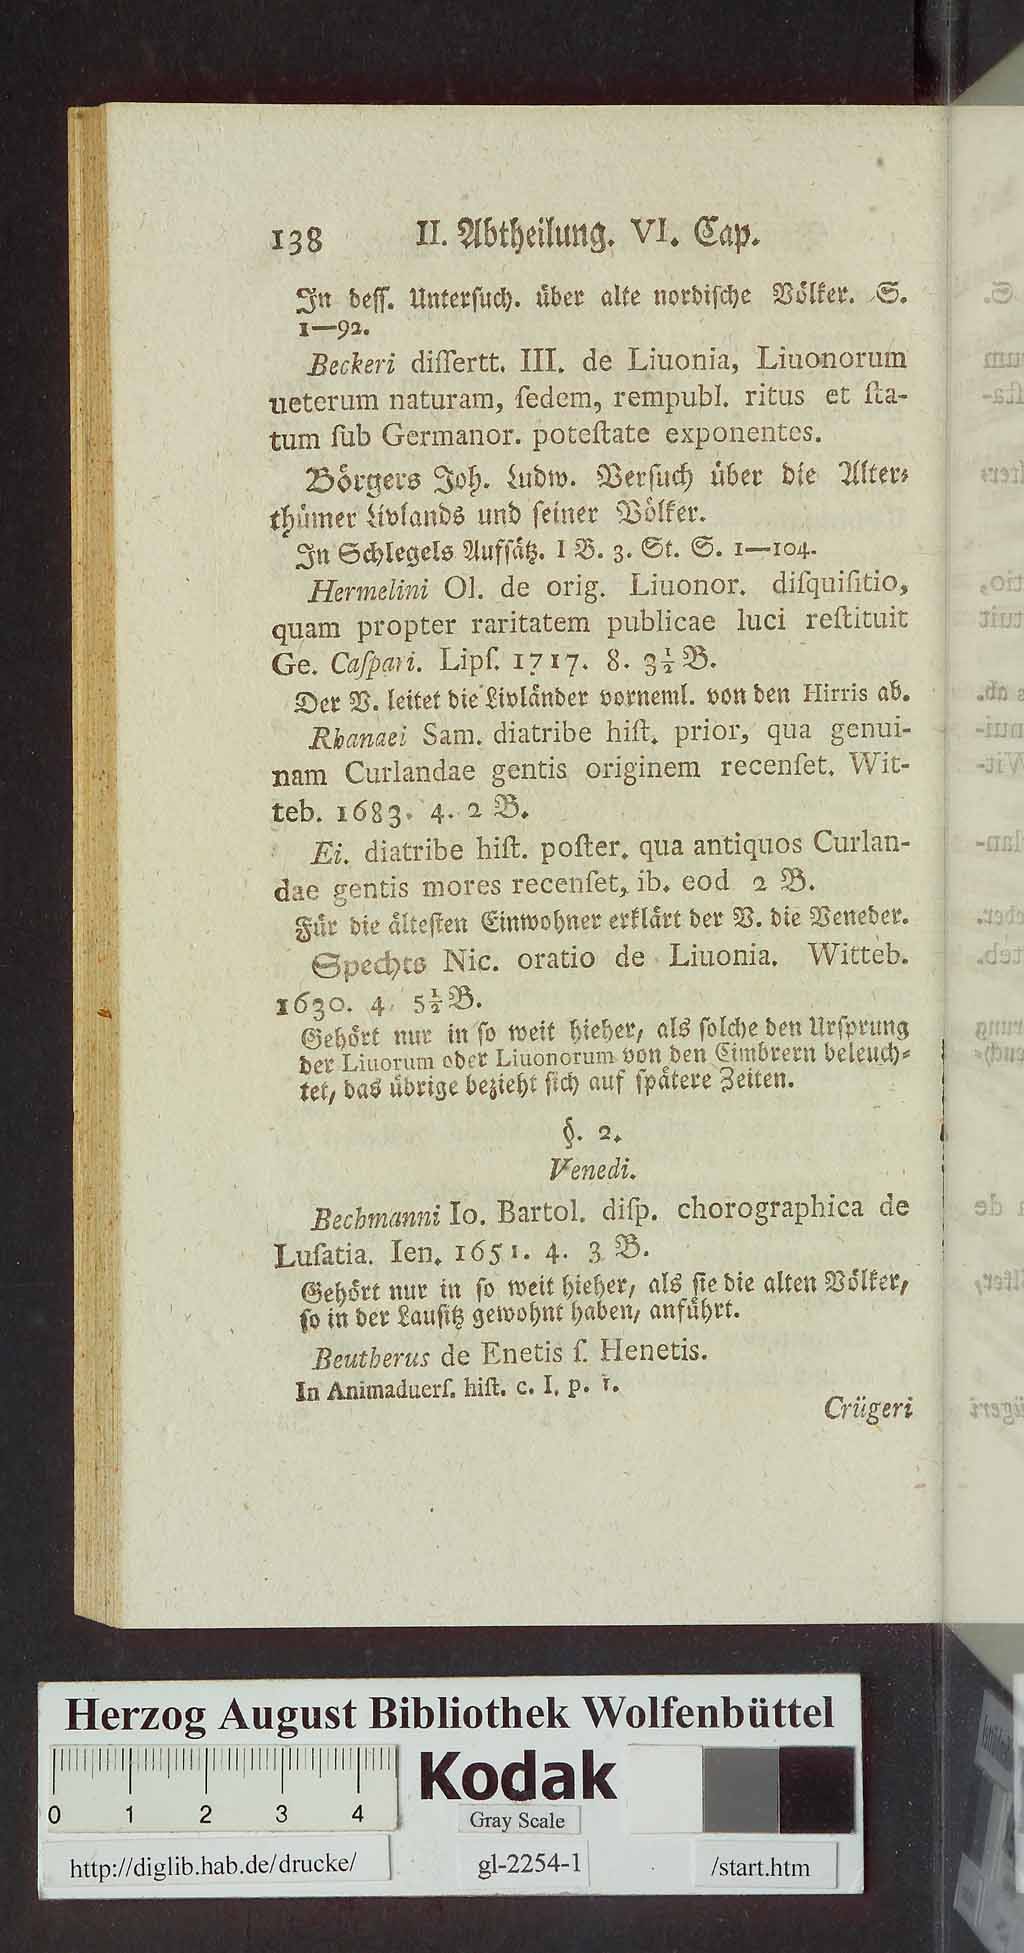 138 II. Abtheilung. VI. Cap.
In dess. Untersuch. über alte nordische Völker. S.
1—92.
Beckeri diſſertt. III. de Liuonia, Liuonorum
ueterum naturam, ſedem, rempubl. ritus et ſta-
tum ſub Germanor. poteſtate exponentes.
Börgers Joh. Ludw. Verſuch über die Alter-
thümer Livlands und ſeiner Völker.
In Schlegels Aufſätz. I B. 3. St. S. 1—104.
Hermelini Ol. de orig. Liuonor. diſquiſitio,
quam propter raritatem publicae luci reſtituit
Ge. Caſpari. Lipſ. 1717. 8. 3½ B.
Der V. leitet die Livländer vorneml. von den Hirris ab.
Rhanaei Sam. diatribe hiſt. prior, qua genui-
nam Curlandae gentis originem recenſet. Wit-
teb. 1683. 4. 2 B.
Ei. diatribe hiſt. poſter. qua antiquos Curlan-
dae gentis mores recenſet, ib. eod 2 B.
Für die älteſten Einwohner erklärt der V. die Veneder.
Spechts Nic. oratio de Liuonia. Witteb.
1630. 4. 5½ B.
Gehört nur in ſo weit hieher, als ſolche den Urſprung
der Liuorum oder Liuonorum von den Cimbrern beleuch-
tet, das übrige bezieht ſich auf ſpätere Zeiten.
§. 2.
Venedi.
Bechmanni Io. Bartol. diſp. chorographica de
Luſatia. Ien. 1651. 4. 3 B.
Gehört nur in ſo weit hieher, als ſie die alten Völker,
ſo in der Lauſitz gewohnt haben, anführt.
Beutherus de Enetis ſ. Henetis.
In Animaduerſ. hiſt. c. I. p. 1.
Crügeri
Herzog August Bibliothek Wolfenbüttel
0 1 2 3 4
Kodak
Gray Scale
http://diglib.hab.de/drucke/ gl-2254-1 /start.htm